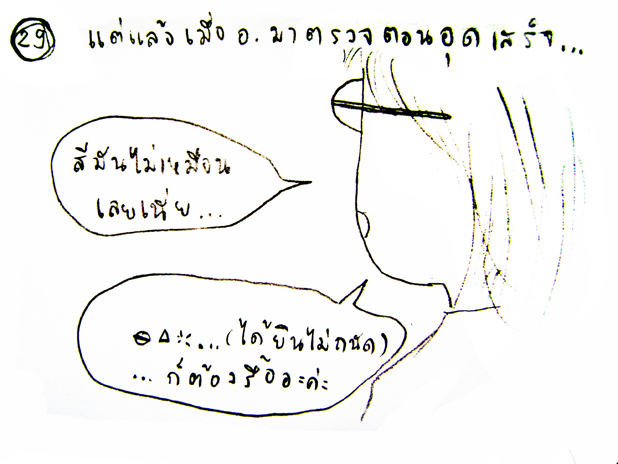 29 แต่แล้วเมื่อ อ. มาตรวจตอนอุดเสร็จ...
สีมันไม่เหมือน
เลยเนี่ย...
...(ได้ยินไม่ถนัด)
... ก็ต้องรื้ออะค่ะ